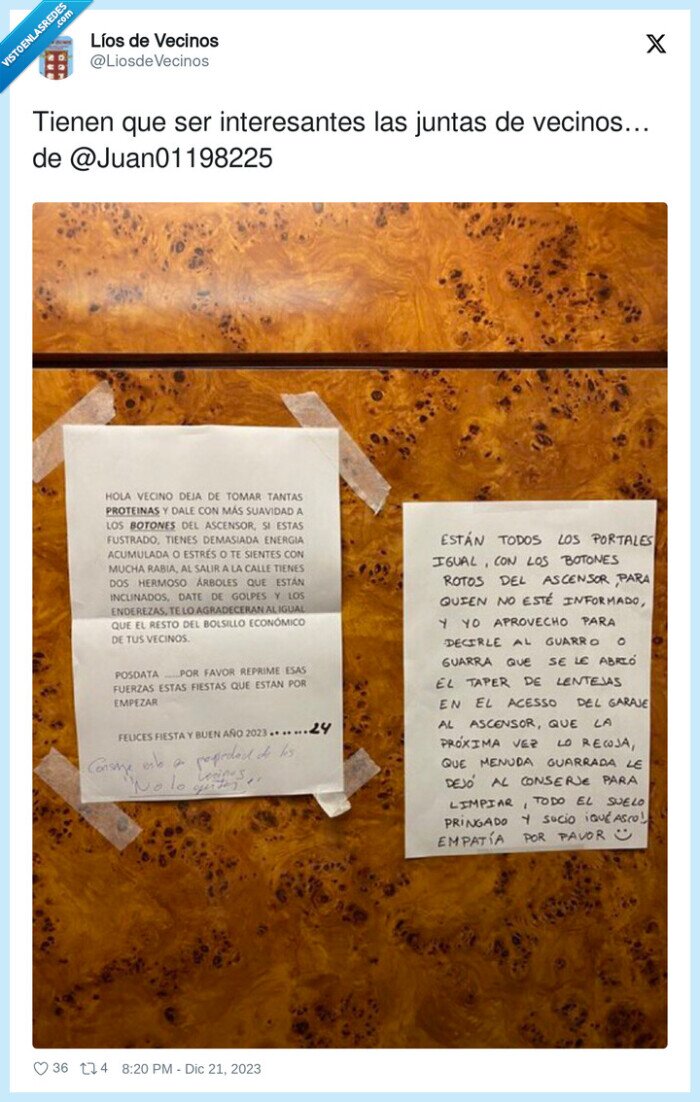 VISTOENLASREDES
.com
Líos de Vecinos
@LiosdeVecinos
X
Tienen que ser interesantes las juntas de vecinos…
de @Juan01198225
HOLA VECINO DEJA DE TOMAR TANTAS
PROTEINAS Y DALE CON MÁS SUAVIDAD A
LOS BOTONES DEL ASCENSOR, SI ESTAS
FUSTRADO, TIENES DEMASIADA ENERGIA
ACUMULADA O ESTRÉS O TE SIENTES CON
MUCHA RABIA, AL SALIR A LA CALLE TIENES
DOS HERMOSO ÁRBOLES QUE ESTÁN
INCLINADOS, DATE DE GOLPES Y LOS
ENDEREZAS, TE LO AGRADECERAN AL IGUAL
QUE EL RESTO DEL BOLSILLO ECONÓMICO
DE TUS VECINOS.
POSDATA .....POR FAVOR REPRIME ESAS
FUERZAS ESTAS FIESTAS QUE ESTAN POR
EMPEZAR
FELICES FIESTA Y BUEN AÑO 2023........24
Conserje esto es propiedad de los
vecinos
"No lo quites"
ESTÁN TODOS LOS PORTALES
IGUAL, CON LOS BOTONES
ROTOS DEL ASCENSOR, PARA
QUIEN NO ESTÉ INFORMADO,
Y YO APROVECHO PARA
DECIRLE AL GUARRO O
GUARRA QUE SE LE ABRIÓ
EL TAPER DE LENTEJAS
EN EL ACCESO DEL GARAJE
AL ASCENSOR, QUE LA
PRÓXIMA VEZ LO RECOJA,
QUE MENUDA GUARRADA LE
DEJÓ AL CONSERJE PARA
LIMPIAR, TODO EL SUELO
PRINGADO Y SUCIO ¡QUÉ ASCO!
EMPATÍA POR FAVOR
36 4 8:20 PM - Dic 21, 2023